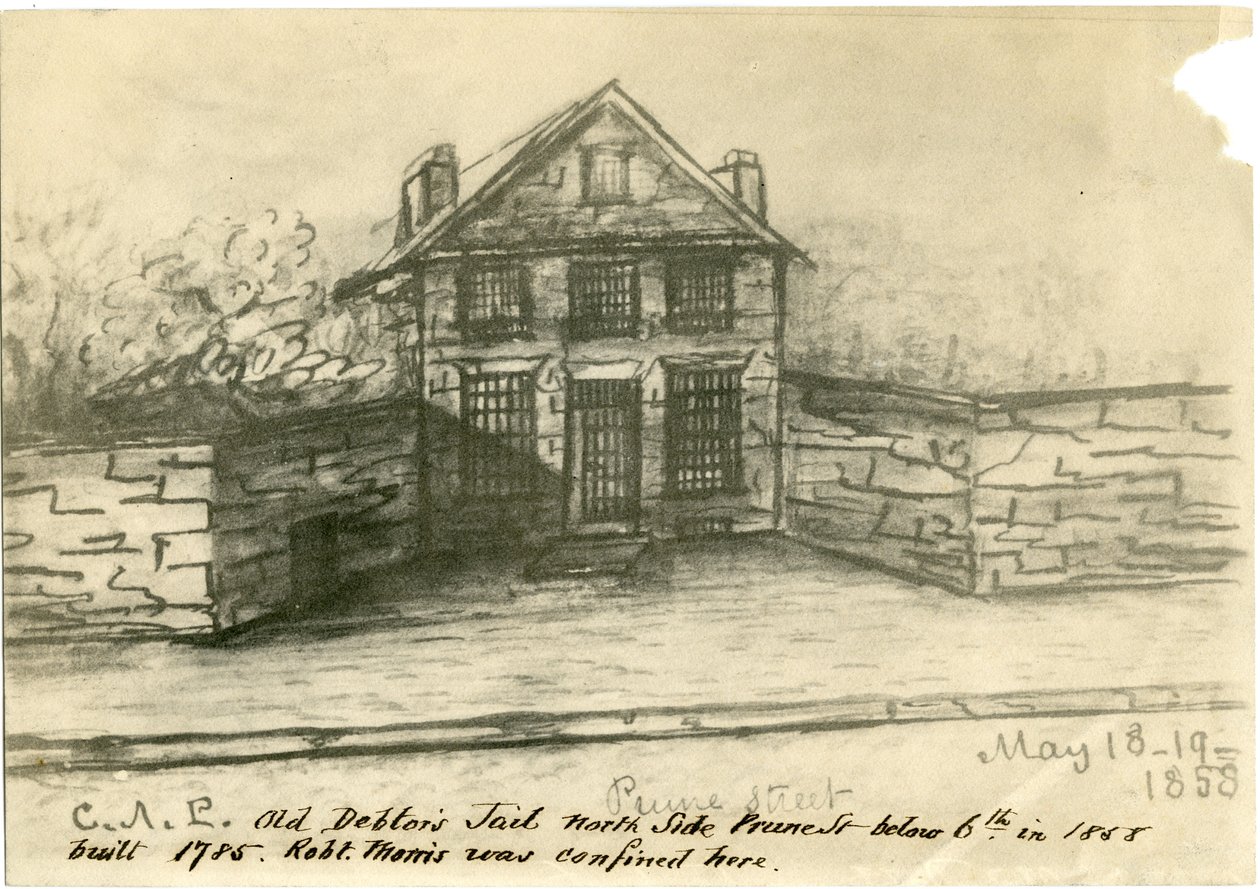 May 18-19=
1858
Prune Street
Old Debtor's Jail North Side Prune St below 6th in 1858
built 1785. Robt. Morris was confined here.